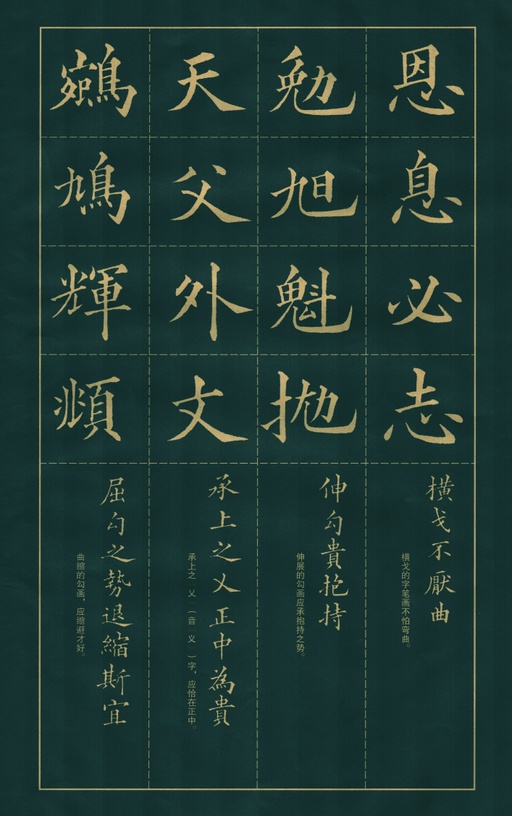 恩息必志
橫戈不厭曲
横戈的字笔画不怕弯曲。
勉旭魁抛
伸勾貴抱持
伸展的勾画应承抱持之势。
天父外丈
承上之乂正中為貴
承上之 乂 （音 义 ）字，应恰在正中。
鳩輝頫
屈勾之勢退縮斯宜
曲缩的勾画，应缩避才好。